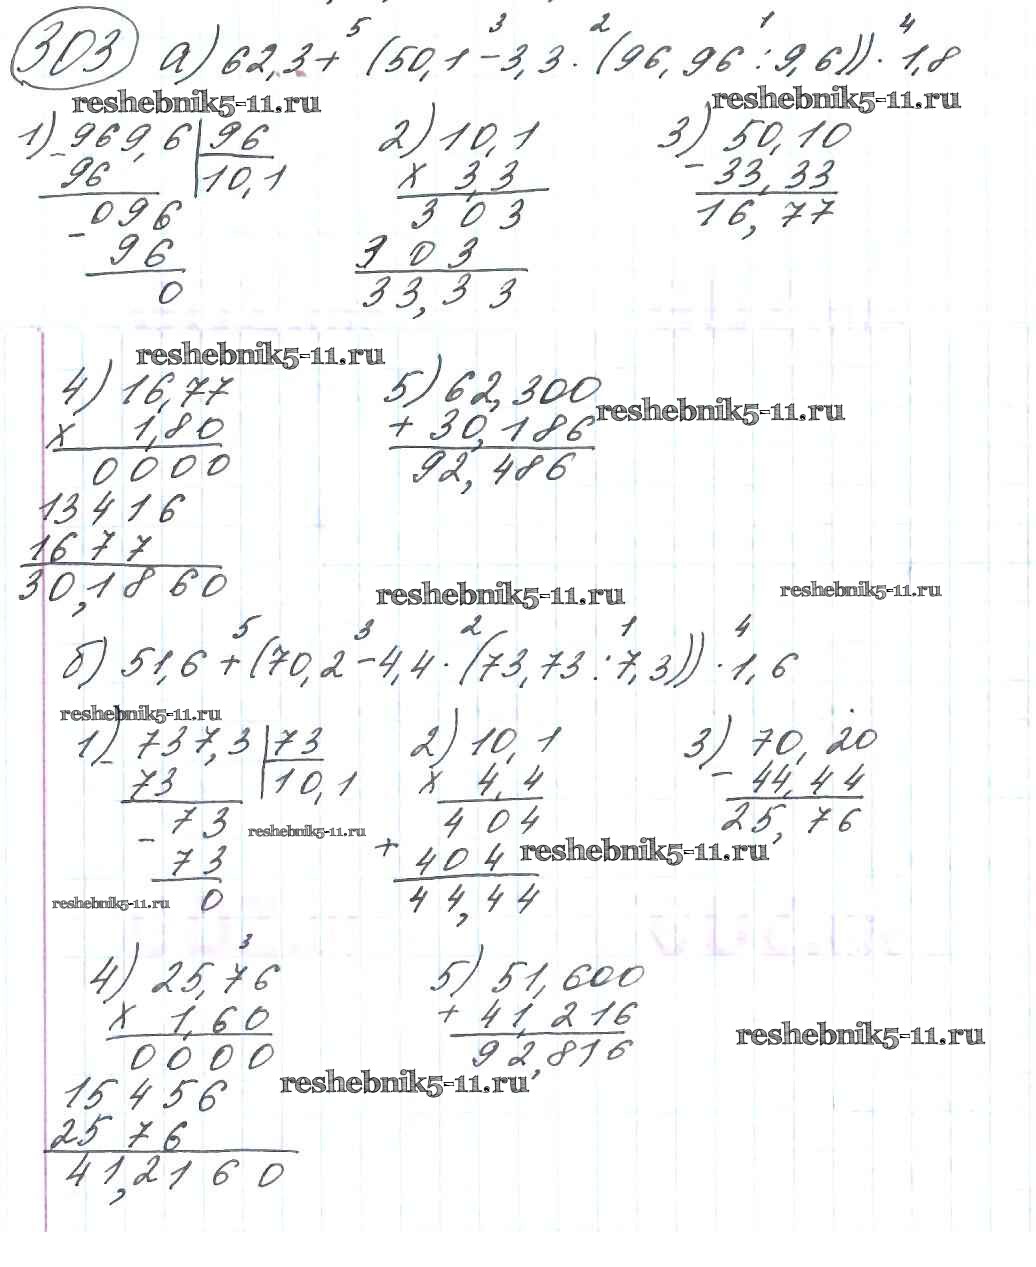 303 а) 62,3 + (50,1 - 3,3 · (96,96 : 9,6)) · 1,8
5 3 2 1 4
reshebnik5-11.ru reshebnik5-11.ru
1) 969,6 | 96 2) 10,1 3) 50,10
- 96 10,1 x 3,3 - 33,33
096 303 16,77
- 96 303
0 33,33
reshebnik5-11.ru
4) 16,77 5) 62,300
x 1,80 + 30,186 reshebnik5-11.ru
0000 92,486
13416
1677
30,1860
reshebnik5-11.ru reshebnik5-11.ru
5 3 2 1 4
б) 51,6 + (70,2 - 4,4 · (73,73 : 7,3)) · 1,6
reshebnik5-11.ru
1) 737,3 | 73 2) 10,1 3) 70,20
- 73 10,1 x 4,4 - 44,44
- 73 reshebnik5-11.ru 404 25,76
73 + 404 reshebnik5-11.ru
reshebnik5-11.ru 0 44,44
3
4) 25,76 5) 51,600
x 1,60 + 41,216
0000 92,816 reshebnik5-11.ru
15456 reshebnik5-11.ru
2576
41,2160